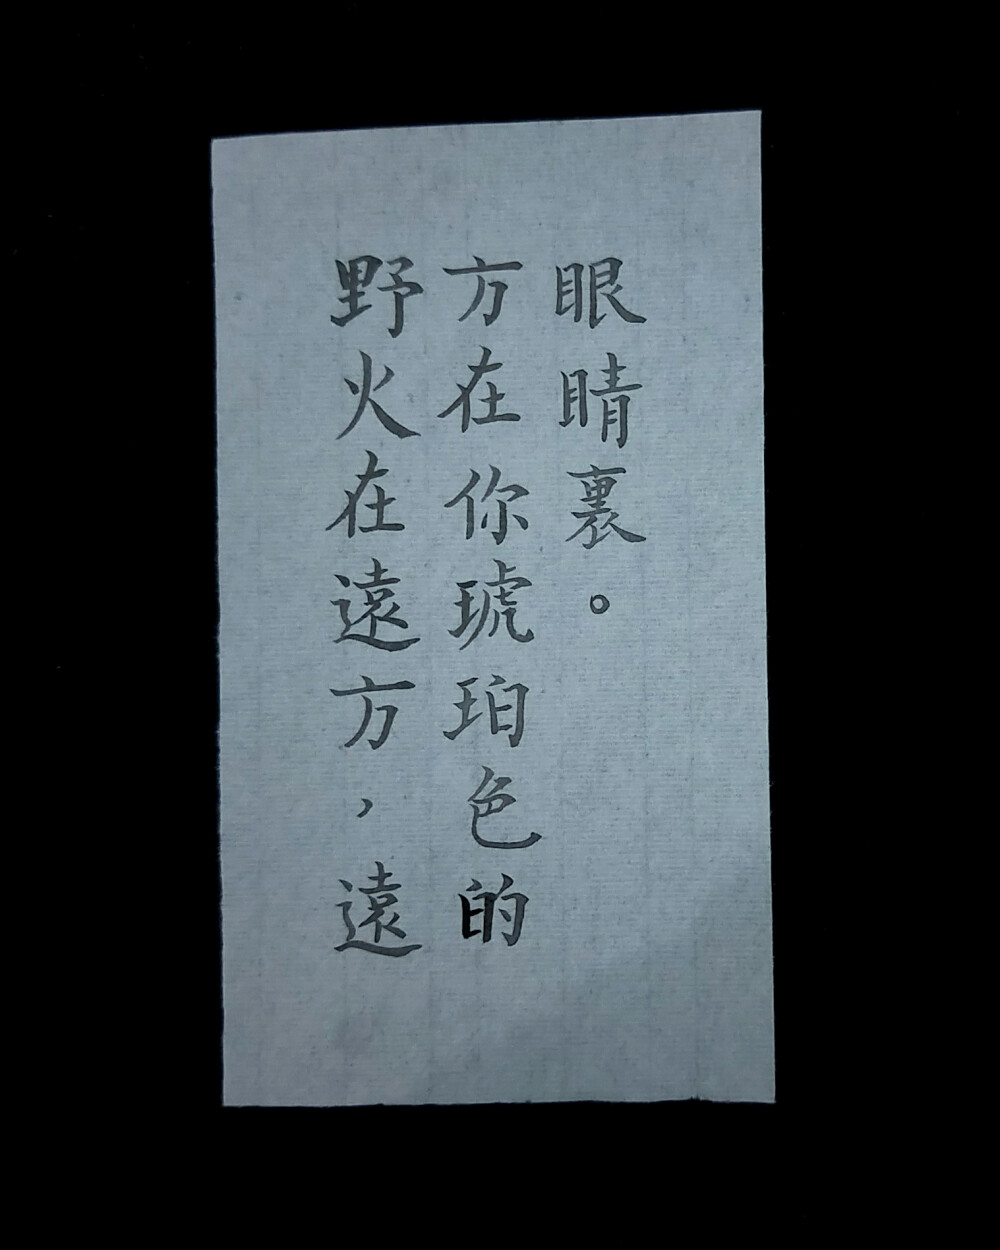 野火在遠方，遠
方在你琥珀色的
眼睛裏。